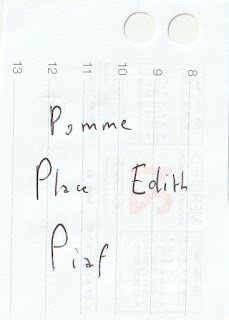 8
9
10
11
12
13
Pomme
Place Edith
Piaf